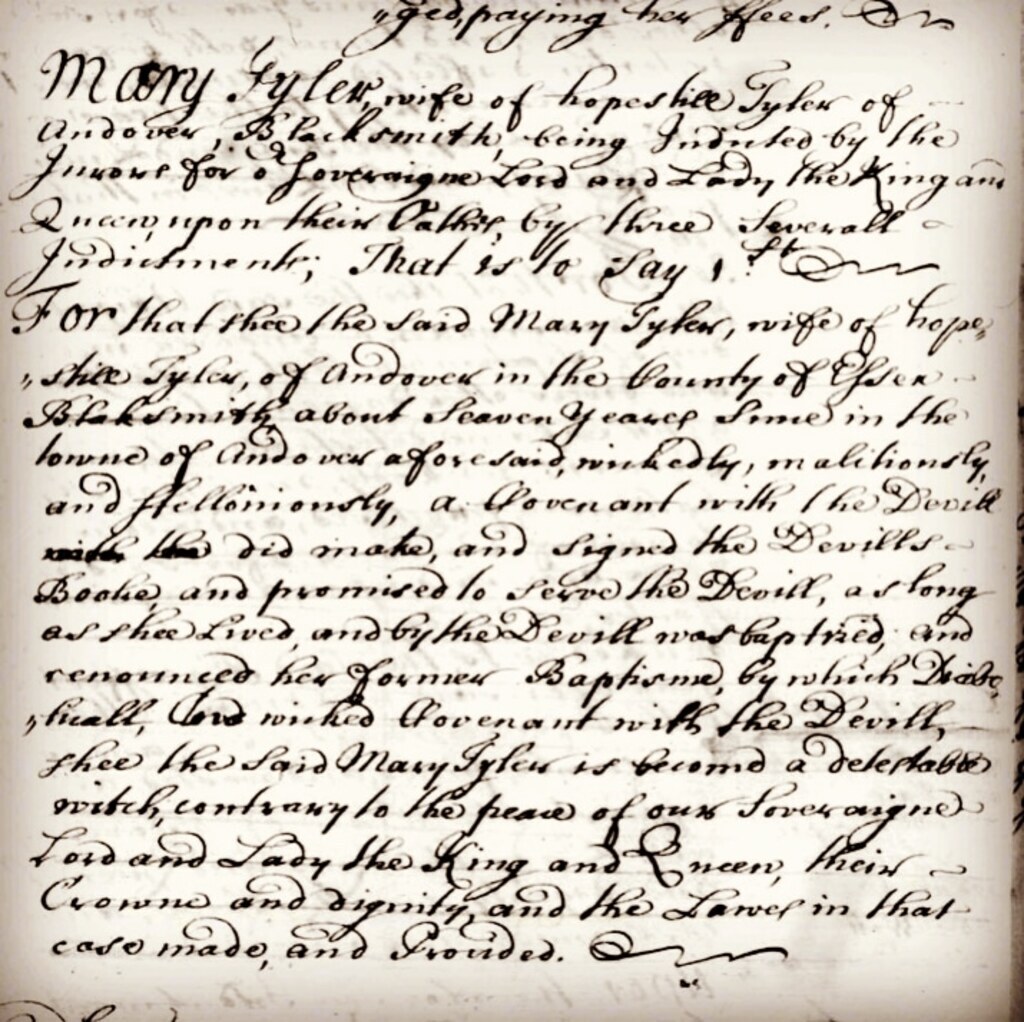 „ged, paying her ffees.
Mary Tyler, wife of hopestill Tyler of
Andover, Blacksmith, being Indicted by the
Jurors for oʳ Soveraigne Lord and Lady the King and
Queen, upon their Oathes, by three Severall
Indictments; That is to Say 1.st
For that shee the said Mary Tyler, wife of hope„
„still Tyler, of Andover in the County of Essex
Blaksmith, about Seaven Yeares Since in the
towne of Andover aforesaid, wickedly, malitiously,
and ffelloniously, a Covenant with the Devill
did make, and signed the Devills
Booke, and promised to serve the Devill, as long
as shee Lived, and by the Devill was baptized, and
renounced her former Baptisme, by which Diabo„
„licall, wicked Covenant with the Devill,
shee the said Mary Tyler is become a detestable
witch, contrary to the peace of our Soveraigne
Lord and Lady the King and Queen, their
Crowne and dignity, and the Lawes in that
case made, and Provided.